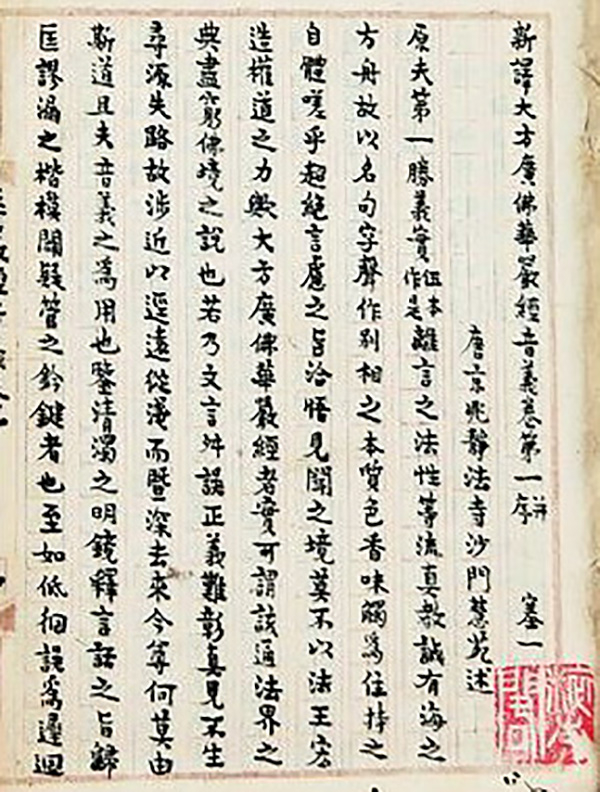 新譯大方廣佛華嚴經音義卷第一并序 塞一
唐京兆靜法寺沙門慧苑述
原夫第一勝義實伍本作是離言之法性等流真教誠有海之
方舟故以名句字聲作別相之本質色香味觸為住持之
自體嗟乎超絕言慮之旨洽悟見聞之境莫不以法王宏
造權道之力歟大方廣佛華嚴經者實可謂該通法界之
典盡窮佛境之說也若乃文言舛誤正義難彰真見不生
尋源失路故涉近以遥遠從淺而暨深去來今等何莫由
斯道且夫音義之為用也鑒清濁之明鏡釋言詁之旨歸
匡謬漏之楷模闢疑管之鈐鍵者也至如低徊誤為遲迴